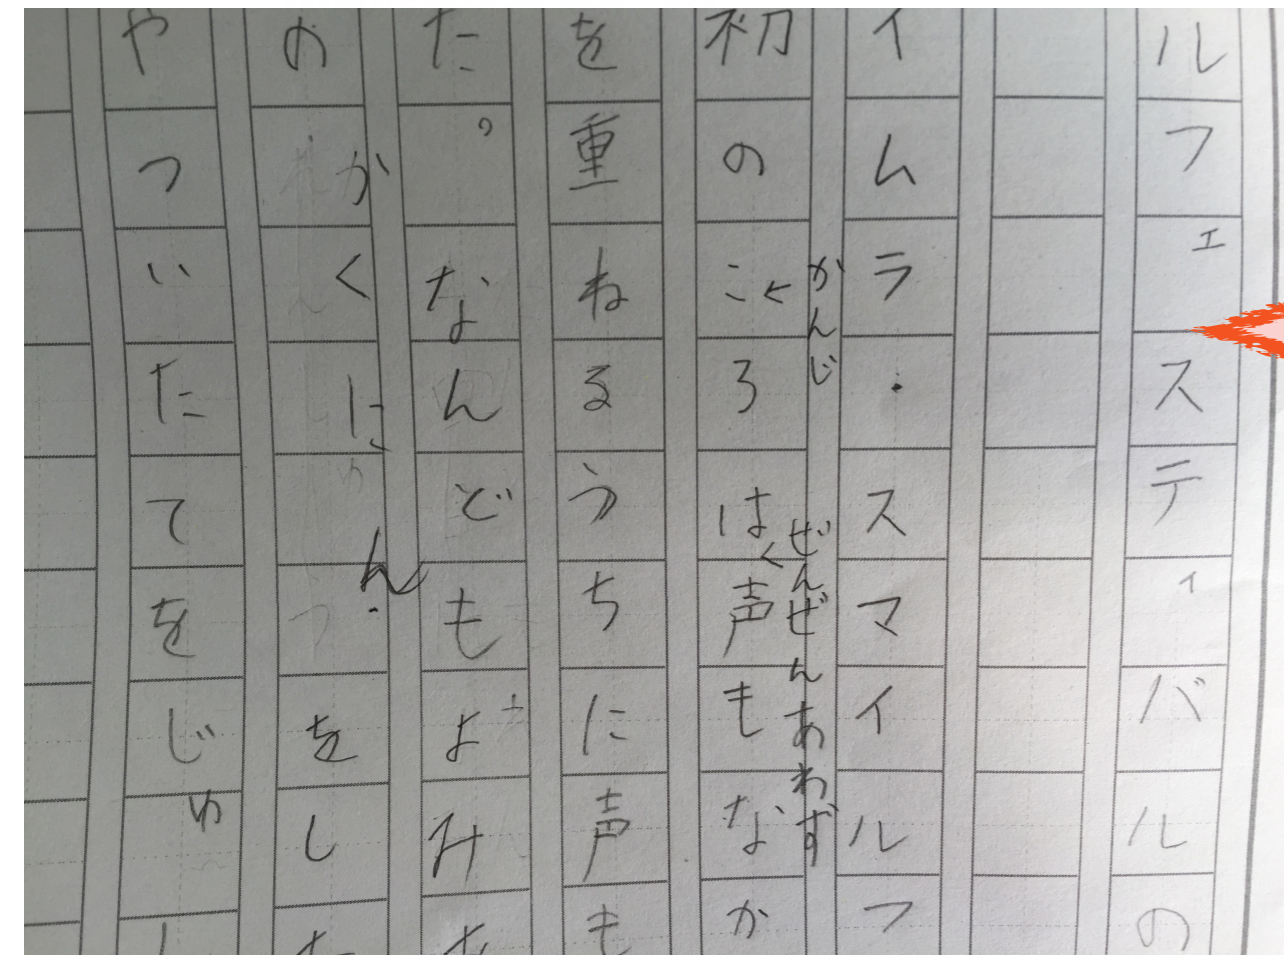 ルフェスティバルの
イムラ・スマイルフ
かんじ
ぜんぜんあわず
初のころは声もなか
を重ねるうちに声も
た。なんどもよみ
のかくにんをした
やっいたてをじゅ